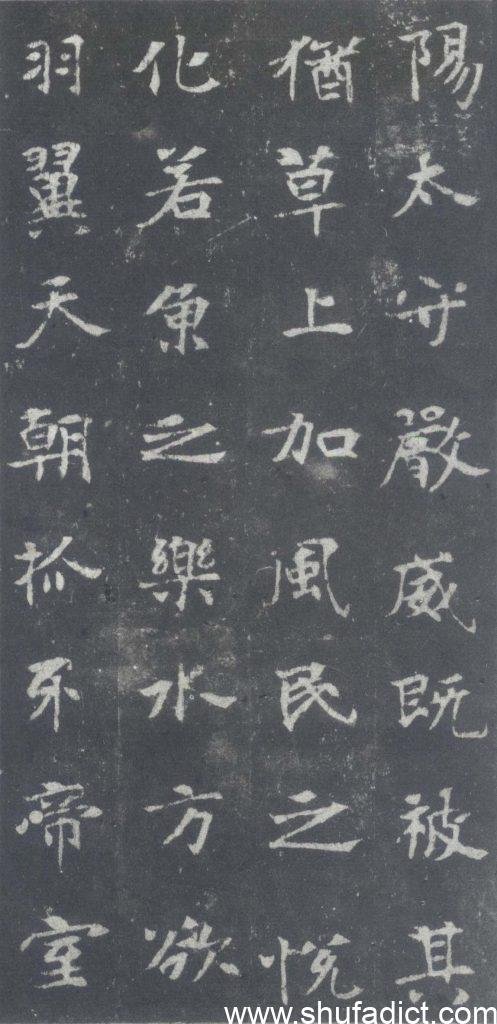 陽太守嚴威既被其
猶草上加風民之悅
化若魚之樂水方欲
羽翼天朝抓牙帝室
www.shufadict.com